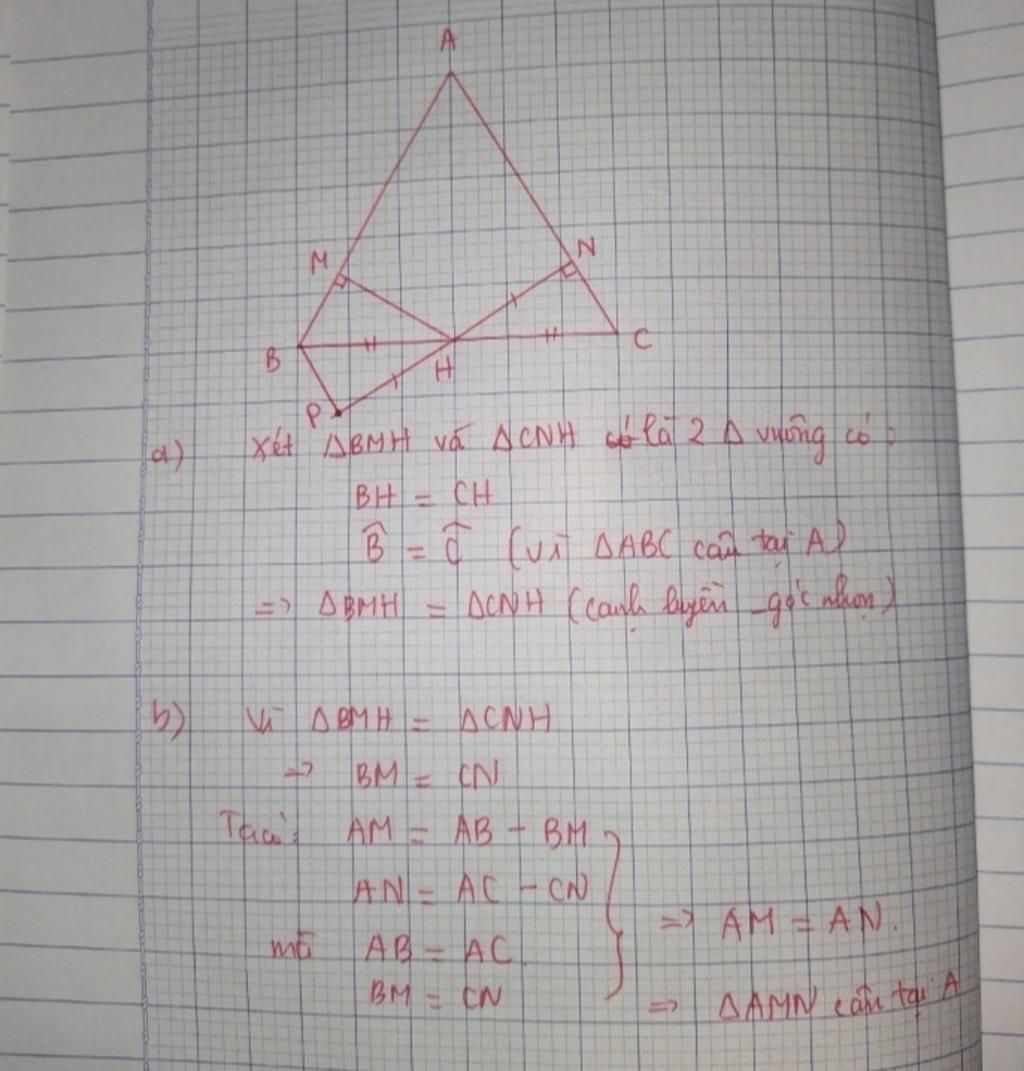 A
M
N
B
H
C
P
a) Xét ΔBMH và ΔCNH có là 2 Δ vuông có :
BH = CH
B̂ = Ĉ (vì ΔABC cân tại A)
=> ΔBMH = ΔCNH (cạnh huyền _ góc nhọn)
b) Vì ΔBMH = ΔCNH
=> BM = CN
Ta có: AM = AB - BM
AN = AC - CN
=> AM = AN.
mà AB = AC
BM = CN
=> ΔAMN cân tại A